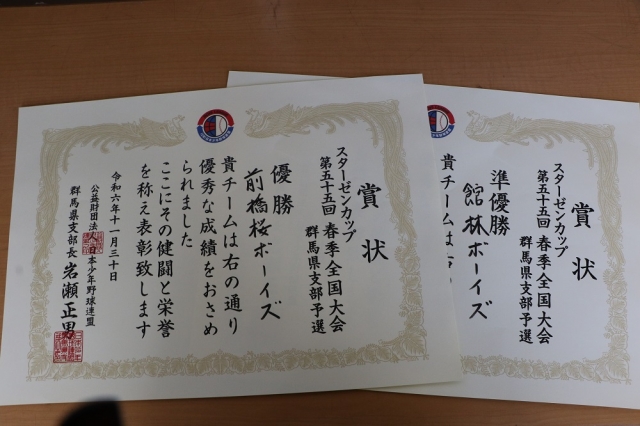 賞状
スターゼンカップ
第五十五回 春季全国大会
群馬県支部予選
優勝
前橋桜ボーイズ
貴チームは右の通り
優秀な成績をおさめ
られました
ここにその健闘と栄誉
を称え表彰致します
令和六年十一月三十日
公益財団法人日本少年野球連盟
群馬県支部長 岩瀬正男
賞状
スターゼンカップ
第五十五回 春季全国大会
群馬県支部予選
準優勝
館林ボーイズ
貴チームは